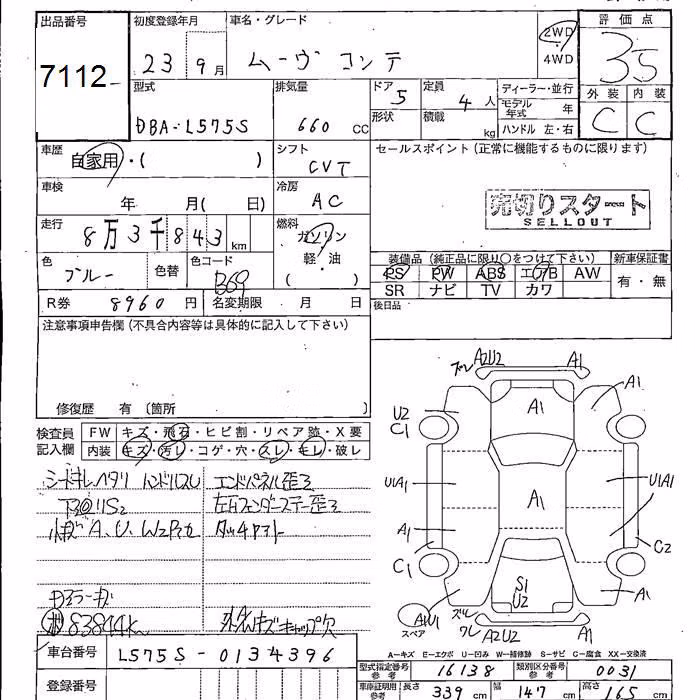 出品番号 初度登録年月 車名・グレード 評価点
7112 23 9月 ムーヴ コンテ 2WD 4WD 3.5
外装 内装
C C
型式 DBA-L575S 排気量 660 CC ドア 5 定員 4人 ディーラー・並行
形状 積載 kg モデル年式 年
ハンドル 左・右
車歴 自家用・( ) シフト CVT セールスポイント(正常に機能するものに限ります)
車検 年 月( 日) 冷房 AC
売切りスタート
SELLOUT
走行 8万3千843km 燃料 ガソリン 軽・油 ( )
色 ブルー 色替 色コード B69
装備品(純正品に限り○をつけて下さい) 新車保証書
PS PW ABS エアB AW 有・無
SR ナビ TV カワ
R券 8960円 名変期限 月 日 後日品
注意事項申告欄(不具合内容等は具体的に記入して下さい)
修復歴 有(箇所 )
検査員記入欄 FW キズ・飛石・ヒビ割・リペア跡・X要
内装 キズ・汚レ・コゲ・穴・スレ・キレ・破レ
ズレ A2U2 A1
A1 A1
U2
C1
U1A1 A1 U1A1
A1
C1 C2
S1
U2
A1
AW1 スペア
ズレ
ワレ A2U2 A1
シートキレヘタリ ハンドルスレ エンドパネル歪ミ
下回リS2 左右フェンダーステー歪ミ
小傷 A、U、W2P有 タッチアトー
83844k キズキャップ欠
A-キズ E-エクボ U-凹み W-補修跡 S-サビ C-腐食 XX-交換済
車台番号 L575S-0134396
型式指定番号 参考 16138 類別区分番号 参考 0031
登録番号
車庫証明用 参考 長さ 339 cm 幅 147 cm 高さ 165 cm